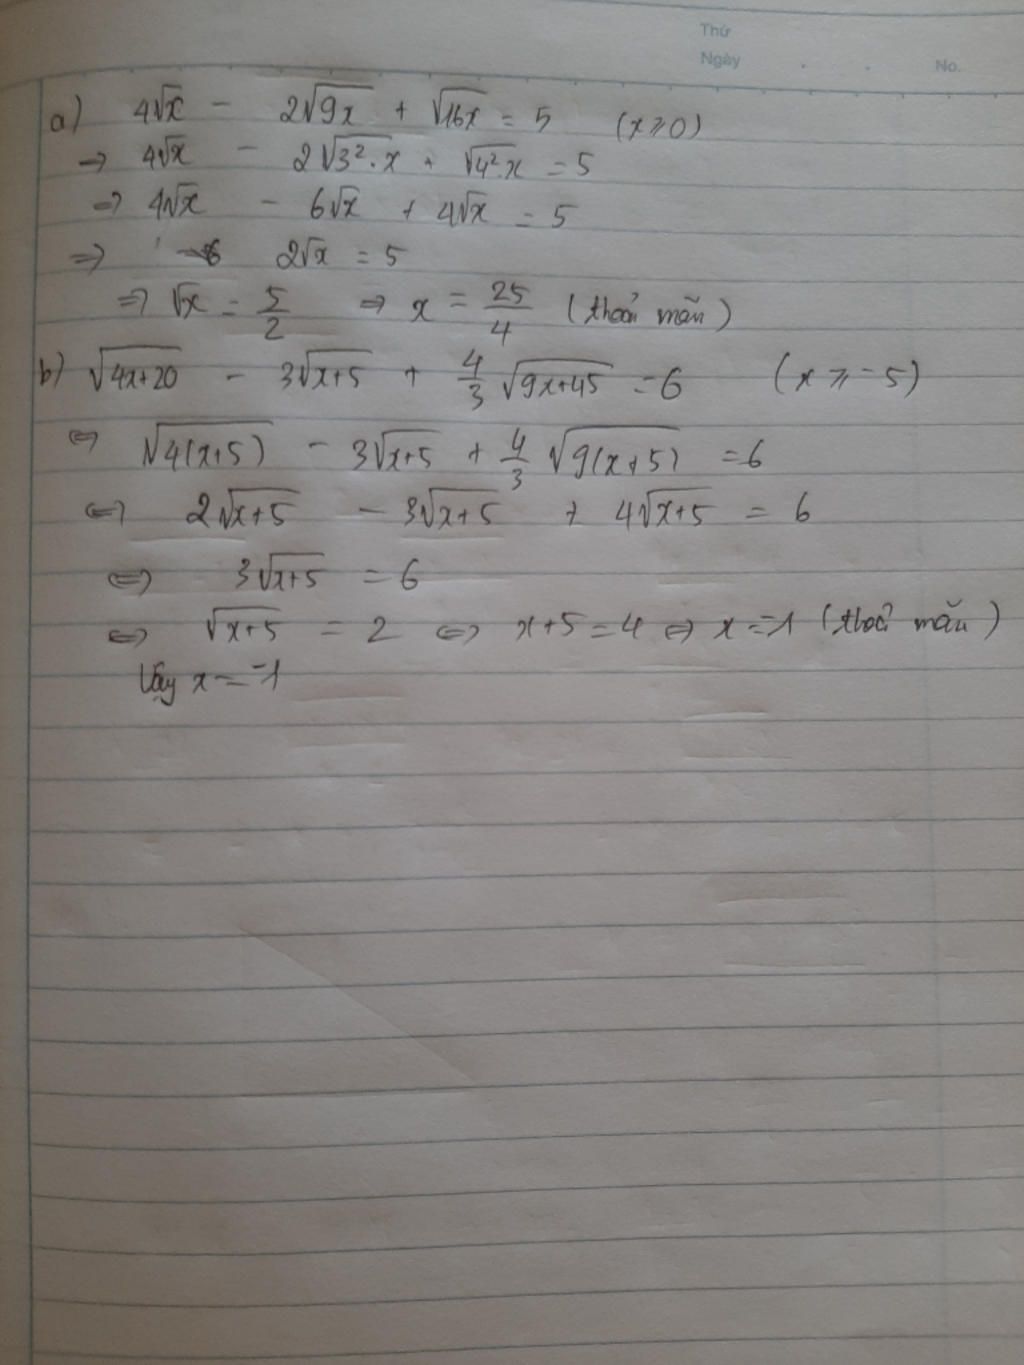 Thứ
Ngày
No.
a) 4√x - 2√9x + √16x = 5 (x ⩾ 0)
⇒ 4√x - 2√3².x + √4².x = 5
⇒ 4√x - 6√x + 4√x = 5
⇒ 2√x = 5
⇒ √x = 5/2 ⇒ x = 25/4 (thoả mãn)
b) √4x+20 - 3√x+5 + 4/3 √9x+45 = 6 (x ⩾ -5)
⇔ √4(x+5) - 3√x+5 + 4/3 √9(x+5) = 6
⇔ 2√x+5 - 3√x+5 + 4√x+5 = 6
⇔ 3√x+5 = 6
⇔ √x+5 = 2 ⇔ x+5 = 4 ⇔ x = -1 (thoả mãn)
Vậy x = -1